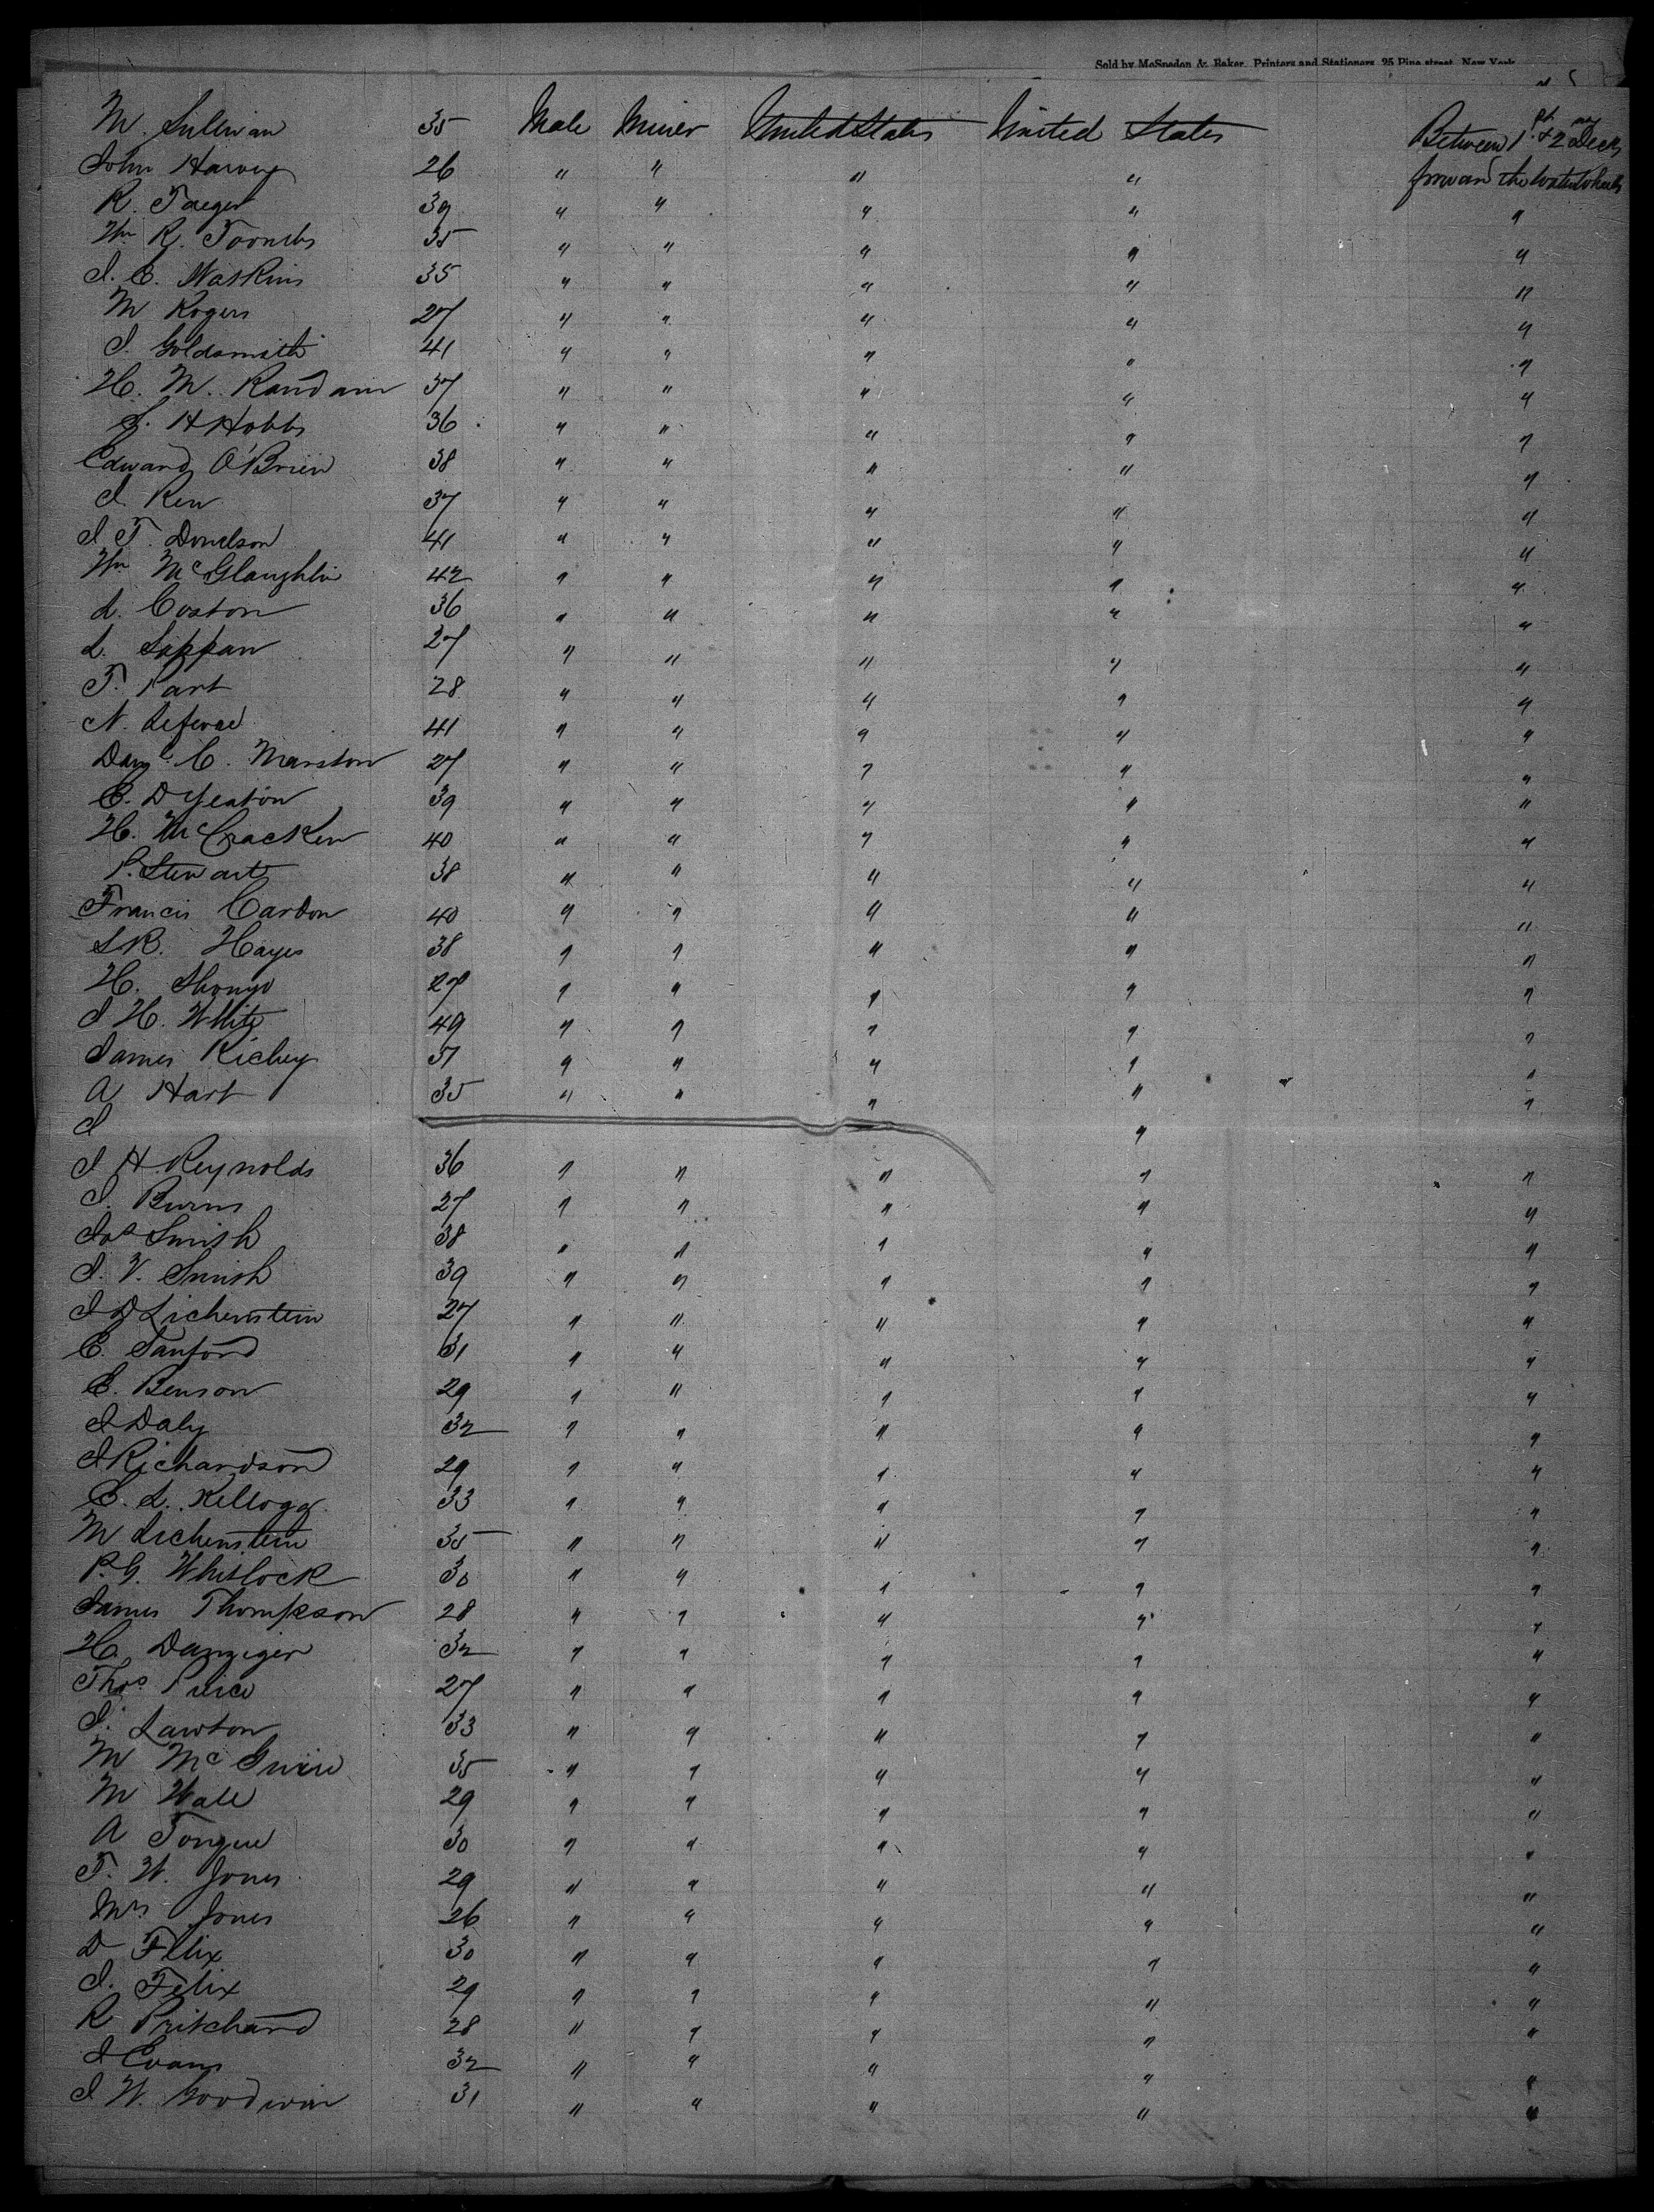 Sold by McSpedon & Baker, Printers and Stationers, 25 Pine street, New York
M. Sullivan 35 Male Miner United States United States Between 1st & 2nd Decks
John Harvey 26 " " " " forward the Waterwheels
R. Taeger 39 " " " " "
Wm R. Toombs 35 " " " " "
J. C. Waskins 35 " " " " "
M Rogers 27 " " " " "
J. Goldsmith 41 " " " " "
H. M. Randam 37 " " " " "
S. H Hobbs 36 " " " " "
Edward O'Brien 38 " " " " "
J. Rew 37 " " " " "
J. T. Donelson 41 " " " " "
Wm McGlaughlin 42 " " " " "
L. Coston 36 " " " " "
L. Sappan 27 " " " " "
T. Part 28 " " " " "
N. 41 " " " " "
Danl. C. Marston 27 " " " " "
C. D Yeaton 39 " " " " "
H. McCracken 40 " " " " "
P. Stewart 38 " " " " "
Francis Cardon 40 " " " " "
S. R. Hayes 38 " " " " "
H. Shonyo 27 " " " " "
J H. White 49 " " " " "
James Richey 37 " " " " "
A Hart 35 " " " " "
J "
J H. Reynolds 36 " " " " "
J. Burns 27 " " " " "
Jos Smith 38 " " " " "
J. V. Smith 39 " " " " "
J D Lichenstein 27 " " " " "
C. Sanford 31 " " " " "
C. Benson 29 " " " " "
J Daly 32 " " " " "
J Richardson 29 " " " " "
C. L. Kellogg 33 " " " " "
M Lichenstein 35 " " " " "
P. G. Whitlock 30 " " " " "
James Thompson 28 " " " " "
H. Danziger 32 " " " " "
Thos Peirce 27 " " " " "
J. Lawton 33 " " " " "
M McGuire 35 " " " " "
M Wall 29 " " " " "
A Tongue 30 " " " " "
T. W. Jones 29 " " " " "
Mrs Jones 26 " " " " "
D Felix 30 " " " " "
J. Felix 29 " " " " "
R Pritchard 28 " " " " "
J Evans 32 " " " " "
J W. Goodwin 31 " " " " "